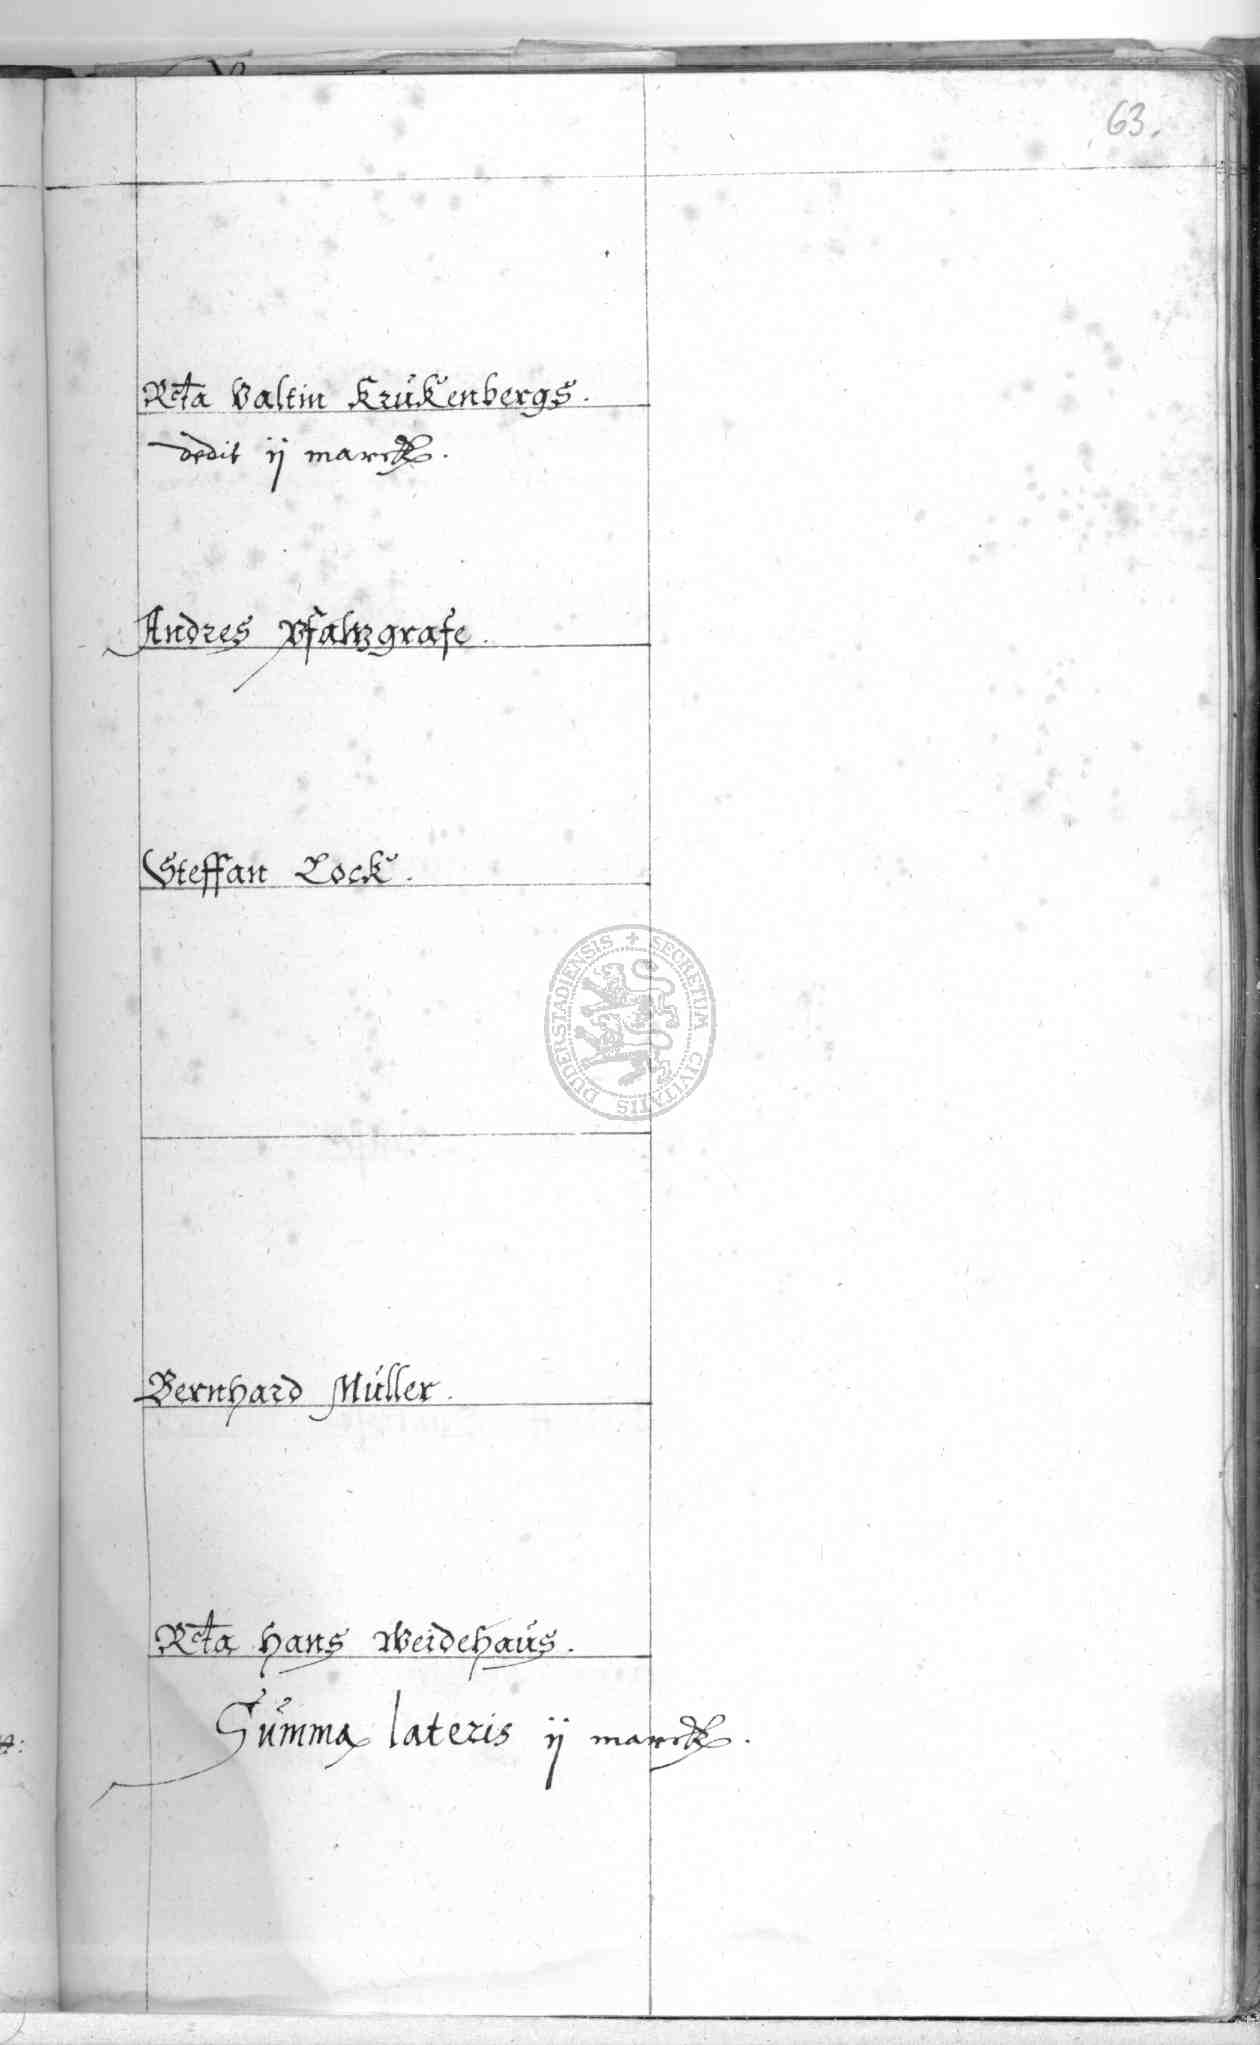 63.
Rcta Valtin Krukenbergs.
dedit ij marck.
Andres Pfaltzgrafe.
Steffan Lock.
SECRETUM CIVITATIS DUDERSTADIENSIS
Bernhard Müller.
Rcta Hans Weidehaus.
Summa lateris ij marck.